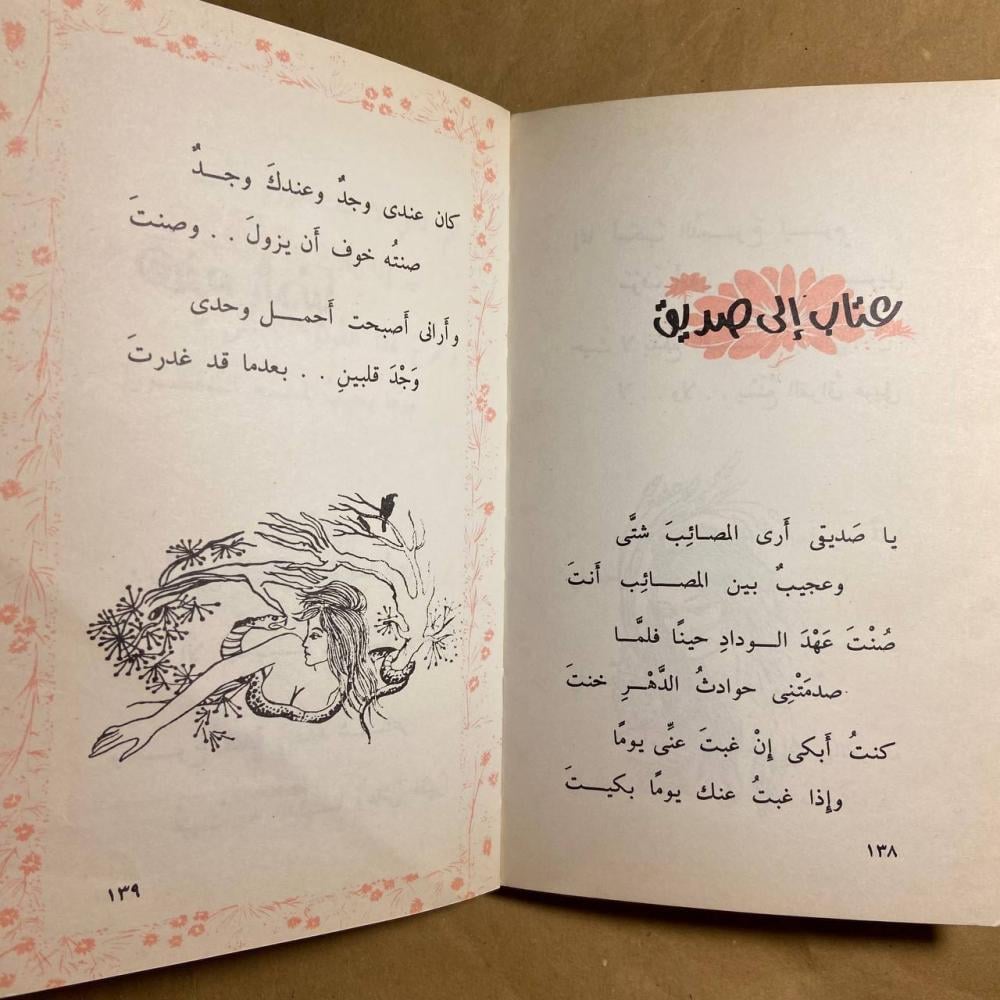 عتاب إلى صديق
يا صَديقى أَرى المصائِبَ شتَّى
وعجيبٌ بين المصائِب أَنتَ
صُنْتَ عَهْدَ الودادِ حينًا فلمَّا
صدمَتْنِى حوادثُ الدَّهْرِ خنتَ
كنتُ أَبكى إِنْ غبتَ عنِّى يومًا
وإِذا غبتُ عنك يومًا بكيتَ
١٣٨
كان عندى وجدٌ وعندكَ وجدٌ
صنتُه خوف أَن يزولَ . . وصنتَ
وأَرانى أَصبحت أَحمل وحدى
وَجْدَ قلبينِ . . بعدما قد غدرتَ
١٣٩